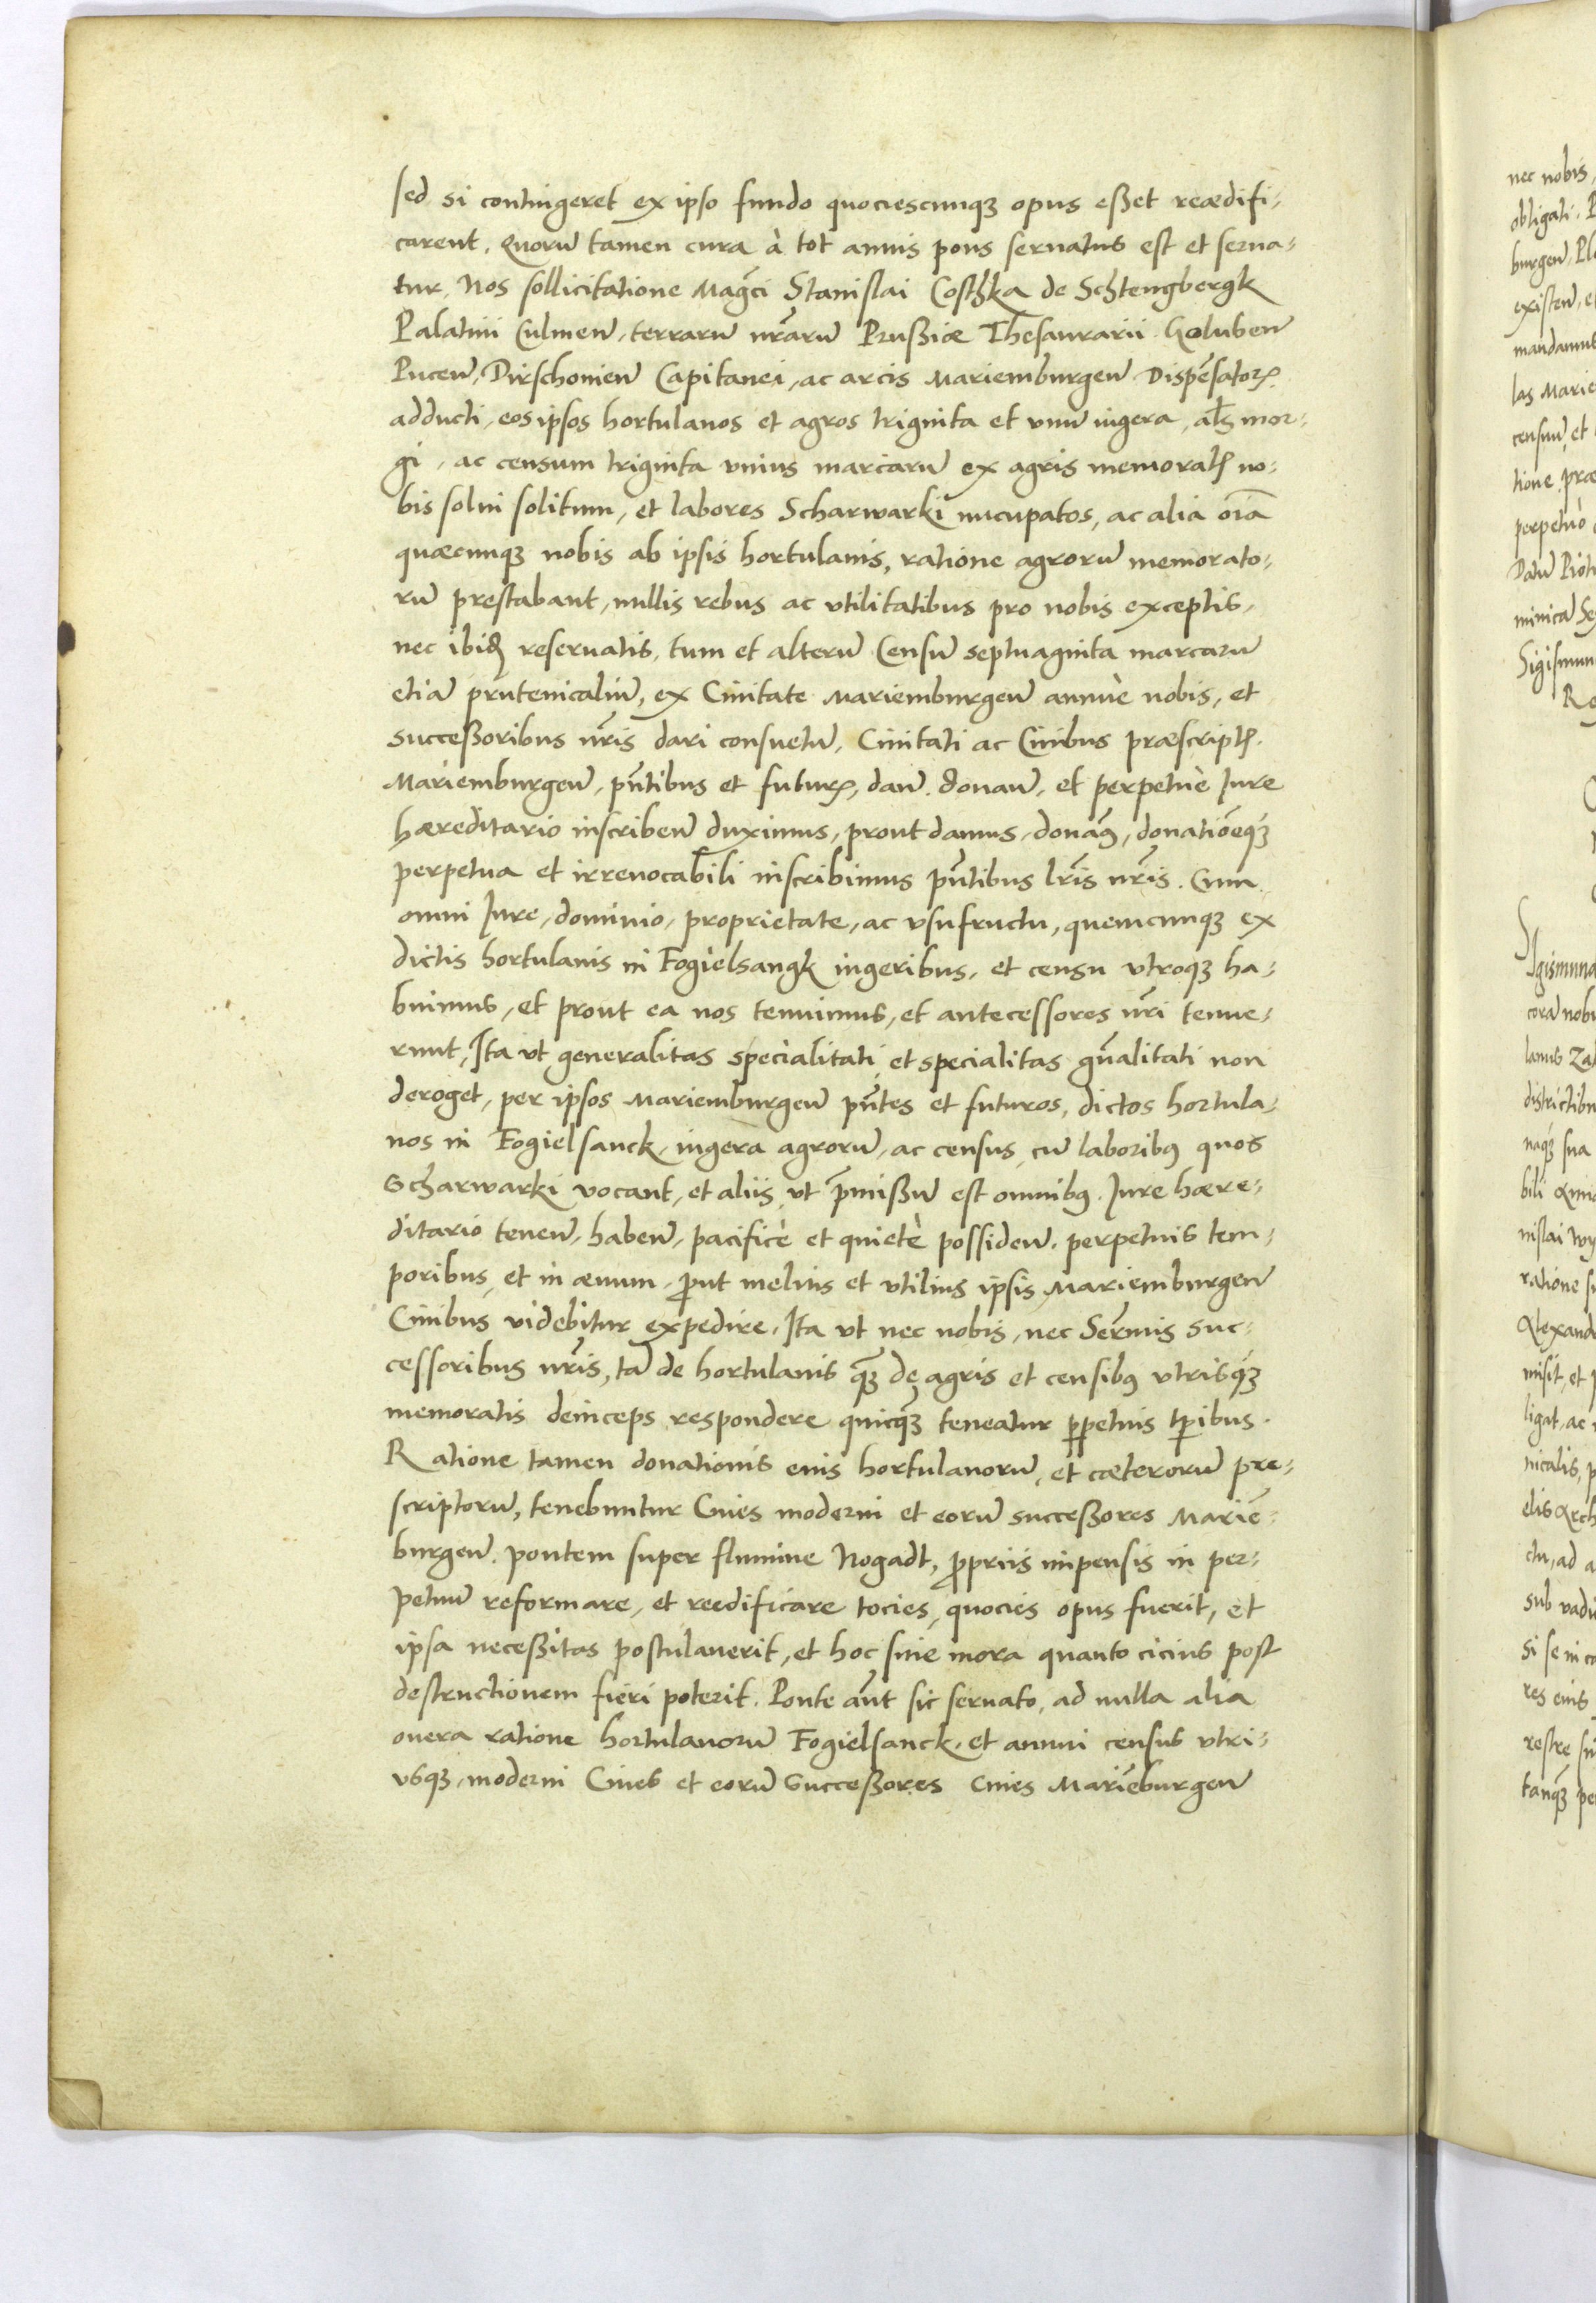 sed si contingeret ex ipso fundo quociescunqꝫ opus eßet reædifi-
carent. Quorū tamen cura à tot annis pons seruatus est et serua-
tur. Nos sollicitatione Magc̄i Stanislai Costhka de Schtengbergk
Palatini Culmen̄, terrarū nr̄arū Prußiæ Thesaurarii. Goluben̄
Pucen̄, Dirschonien̄ Capitanei, ac arcis Mariemburgen̄ Dispēsatorꝭ
adducti, eos ipsos hortulanos et agros triginta et vnū iugera, alꝭs mor-
gi, ac censum triginta vnius marcarū ex agris memoratꝭ no-
bis solui solitum, et labores Scharwarki nūcupatos, ac alia oīa
quæcunqꝫ nobis ab ipsis hortulanis, ratione agrorū memorato-
rū prestabant, nullis rebus ac vtilitatibus pro nobis exceptis,
nec ibidꝫ reseruatis, tum et alterū Censū septuaginta marcarū
etiā prutenicaliū, ex Ciuitate Mariemburgen̄ annuè nobis, et
succeßoribus nr̄is dari consuetū, Ciuitati ac Ciuibus præscriptꝭ.
Mariemburgen̄, pn̄tibus et futurꝭ, dan̄. donan̄, et perpetuè Jure
hæreditario inscriben̄ duximus, prout damus, donamꝰ, donatiōeqꝫ
perpetua et irreuocabili inscribimus pn̄tibus lr̄is nr̄is. Cum
omni Jure, dominio, proprietate, ac vsufructu, quemcunqꝫ ex
dictis hortulanis in Fogielsangk iugeribus, et censu vtroqꝫ ha-
buimus, et prout ea nos tenuimus, et antecessores nr̄i tenue-
runt, Ita vt generalitas specialitati, et specialitas gn̄alitati non
deroget, per ipsos Mariemburgen̄ pn̄tes et futuros, dictos hortula-
nos in Fogielsanck, iugera agrorū, ac census, cū laboribꝰ quos
Scharwarki vocant, et aliis, vt p̄mißū est omnibꝰ. Jure hære-
ditario tenen̄, haben̄, pacificè et quietè possiden̄. perpetuis tem-
poribus, et in æuum, prout melius et vtilius ipsis Mariemburgen̄
Ciuibus videbitur expedire. Ita vt nec nobis, nec Serm̄is suc-
cessoribus nr̄is, tā de hortulanis qꝫ de agris et censibꝰ vtrisqꝫ
memoratis deinceps respondere quicqꝫ teneatur ꝑpetuis tꝑibus.
Ratione tamen donationis eius hortulanorū, et cæterorū pre-
scriptorū, tenebuntur Ciues moderni et eorū succeßores Mariē-
burgen̄. pontem super flumine Nogadt, ꝓpriis impensis in per-
petuū reformare, et reedificare tocies, quocies opus fuerit, et
ipsa neceßitas postulauerit, et hoc sine mora quanto cicius post
destructionem fieri poterit. Ponte aūt sic seruato, ad nulla alia
onera ratione hortulanorū Fogielsanck, et annui census vtri-
vsqꝫ, moderni Ciues et eorū Succeßores Ciues Mariēburgen̄
nec nobis,
obligati.
burgen̄,
existen̄,
mandamus
las Marie
censuū, et
tione, præ
perpetuò
Datū
minica
Sigismun
gismun
corā nobi
lanus
districtibu
naqꝫ sua
bili
nislai
ratione
Alexand
misit, et
ligat, ac
nicalis,
elis Arch
ctu, ad a
sub vadi
si se in co
res eius
restre
tanqꝫ pe